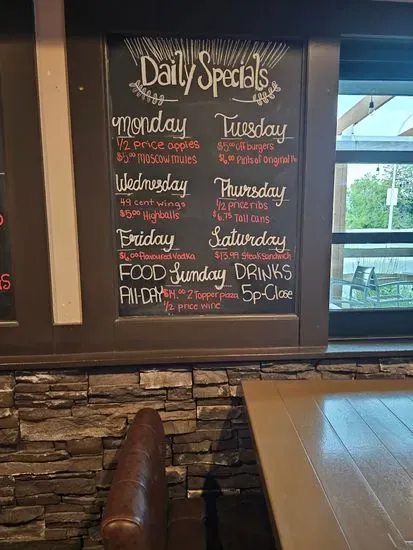 Daily Specials
Monday
1/2 price apples
$5.00 Moscow mules
Tuesday
$5.00 off burgers
$6.00 Pints of original 16
Wednesday
49 cent wings
$5.00 Highballs
Thursday
1/2 price ribs
$6.75 Tall cans
Friday
$6.00 Flavoured Vodka
Saturday
$13.99 Steak Sandwich
FOOD
All-DAY
Sunday
$14.00 2 Topper pizza
1/2 price wine
DRINKS
5p-Close